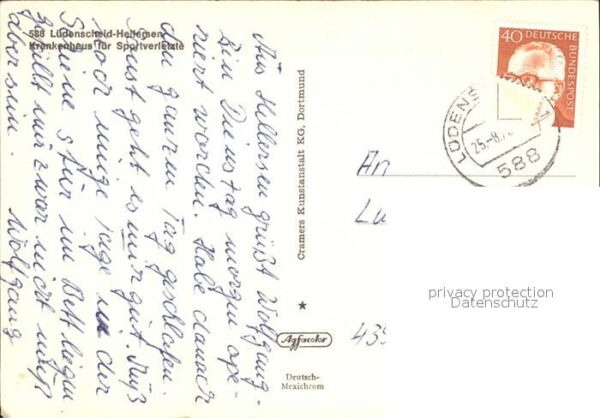 588 Lüdenscheid-Hellersen
Krankenhaus für Sportverletzte
Aus Hellersen grüßt Wolfgang.
Bin Dienstag morgen ope-
riert worden. Habe danach
den ganzen Tag geschlafen.
Sonst geht es mir gut. Muß
noch einige Tage in der
Stur im Bett liegen
gefällt mir zwar nicht muß
aber sein.
Wolfgang
Cramers Kunstanstalt KG, Dortmund
Agfacolor
Deutsch-
Mexichrom
40
DEUTSCHE
BUNDESPOST
LÜDENS
25.-8.
588
An
435
privacy protection
Datenschutz